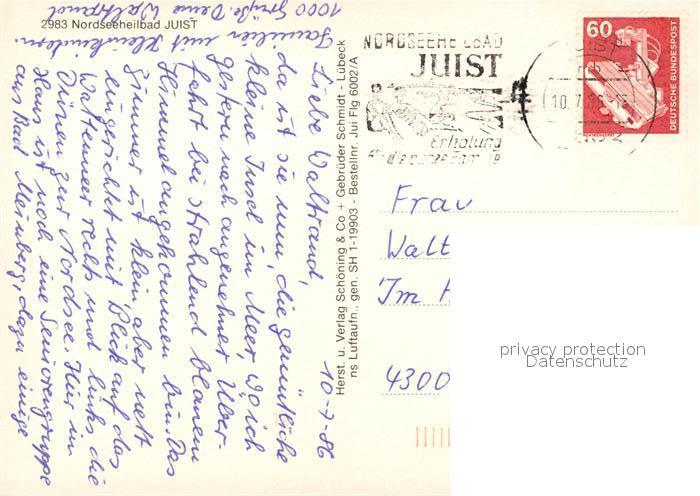 2983 Nordseeheilbad JUIST
10-7-86
Liebe Waltraud,
da ist sie nun, die gemütliche
kleine Insel im Meer, wo ich
gestern nach angenehmer Über-
fahrt bei strahlend blauem
Himmel angekommen bin. Das
Zimmer ist klein, aber nett
eingerichtet mit Blick auf das
Wattenmeer rechts und links die
Dünen zur Nordsee. Hier im
Haus ist noch eine Seniorengruppe
aus Bad Meinberg, dazu einige
Familien mit Kleinkindern.
1000 Grüße. Deine Waltraud
Herst. u. Verlag Schöning & Co + Gebrüder Schmidt - Lübeck
ns Luftaufn., gen. SH 1-19903 - Bestellnr. Jui Flg 6002/A
NORDSEEHEILBAD
JUIST
Erholung
für die ganze Familie
JUIST
10.7.86
60
DEUTSCHE BUNDESPOST
Frau
Walt
Im
4300
privacy protection
Datenschutz